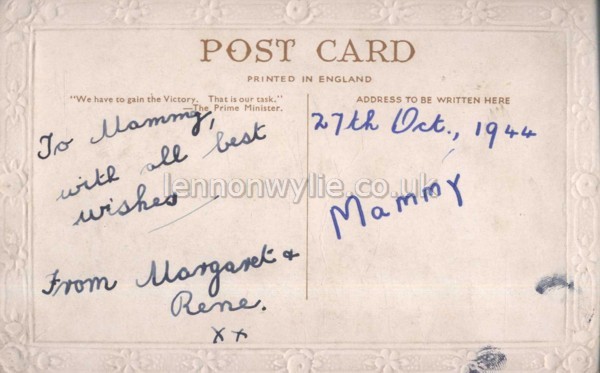 POST CARD
PRINTED IN ENGLAND
"We have to gain the Victory. That is our task."
—The Prime Minister.
To Mammy,
with all best
wishes
From Margaret &
Rene.
xx
ADDRESS TO BE WRITTEN HERE
27th Oct., 1944
Mammy
lennonwylie.co.uk